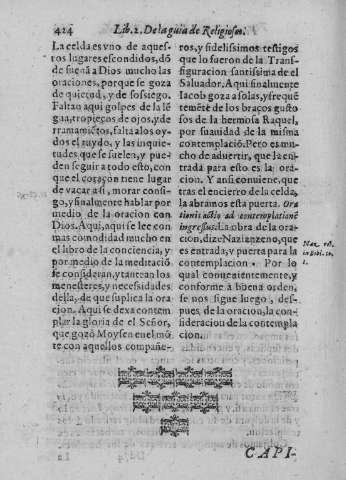 424 Lib.2. De la guia de Religiosos.
La celda es vno de aques-
tos lugares escondidos, dõ
de suenã a Dios mucho las
oraciones, porque se goza
de quietud, y de sosiego.
Faltan aqui golpes de la lẽ
gua, tropieços de ojos, y de
rramamiẽtos, falta a los oy-
dos el ruydo, y las inquie-
tudes que se suelen, y pue-
den seguir a todo esto, con
que el coraçon tiene lugar
de vacar a si, morar consi-
go, y finalmente hablar por
medio de la oracion con
Dios. Aqui, aqui se lee con
mas comodidad mucho en
el libro de la conciencia, y
por medio de la meditaciõ
se consideran, y tantean los
menesteres, y necessidades
della, de que suplica la ora
cion. Aqui se dexa contem
plar la gloria de el Señor,
que gozò Moysen en el mõ
te con aquellos compañe-
ros, y fidelissimos testigos
que lo fueron de la Trans-
figuracion santissima de el
Saluador. Aqui finalmente
Iacob goza a solas, y se quie
temẽte de los braços gusto
sos de la hermosa Raquel,
por suauidad de la misma
contemplaciõ. Pero es mu-
cho de aduertir, que la en-
trada para esto es la ora-
cion. Y ansi conuiene, que
tras el encierro de la celda,
la abramos esta puerta. Ora
tionis actio ad contemplationẽ
ingressus. La obra de la ora-
cion, dize Nazianzeno, que
es entrada, y puerta para la
contemplacion. Por lo
qual conuenientemente, y
conforme a buena orden,
se nos sigue luego, des-
pues de la oracion, la con-
sideracion de la contempla
cion.
Naz.
CAPI-